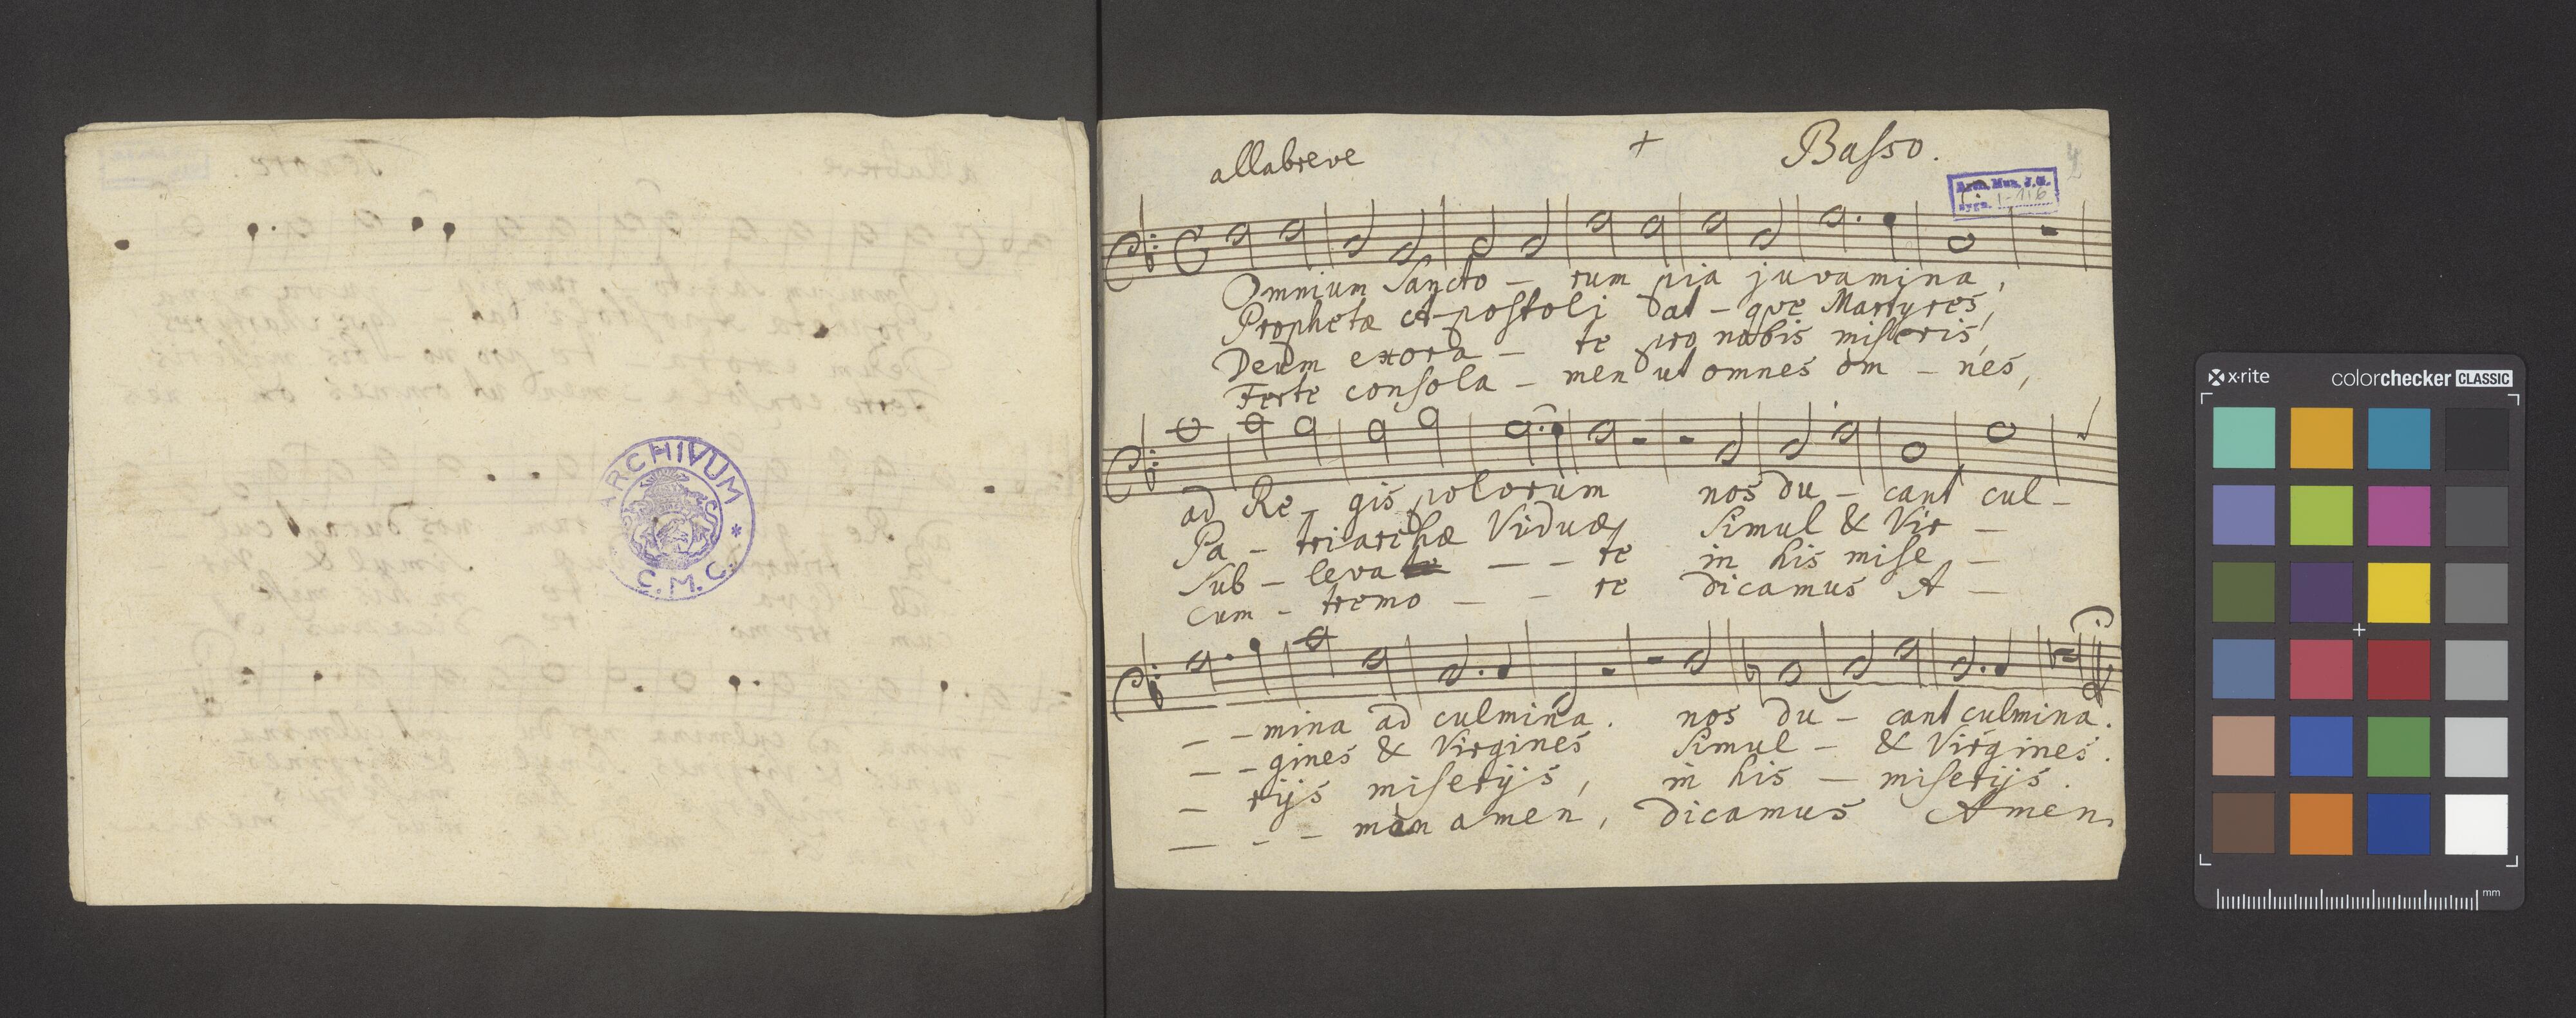 ARCHIVUM
C.M.C.
allabreve + Basso.
Arch. Mus. J. G.
sygn. I-116
Omnium Sancto - rum pia juvamina,
Prophetæ Apostoli at - que Martyres,
Deum exora - te pro nobis miseris,
Ferte consola - men ut omnes om - nes,
ad Re - gis polorum nos du - cant cul -
Pa - triarchæ Viduæ, Simul & Vir -
Sub - leva - - te in his mise -
Cum - tremo - - re dicamus A -
- - mina ad culmina. nos du - cant culmina.
- - gines & Virgines Simul - & Virgines.
- rijs miserijs, in his - miserijs.
- - - men amen, dicamus Amen
x·rite colorchecker CLASSIC
mm